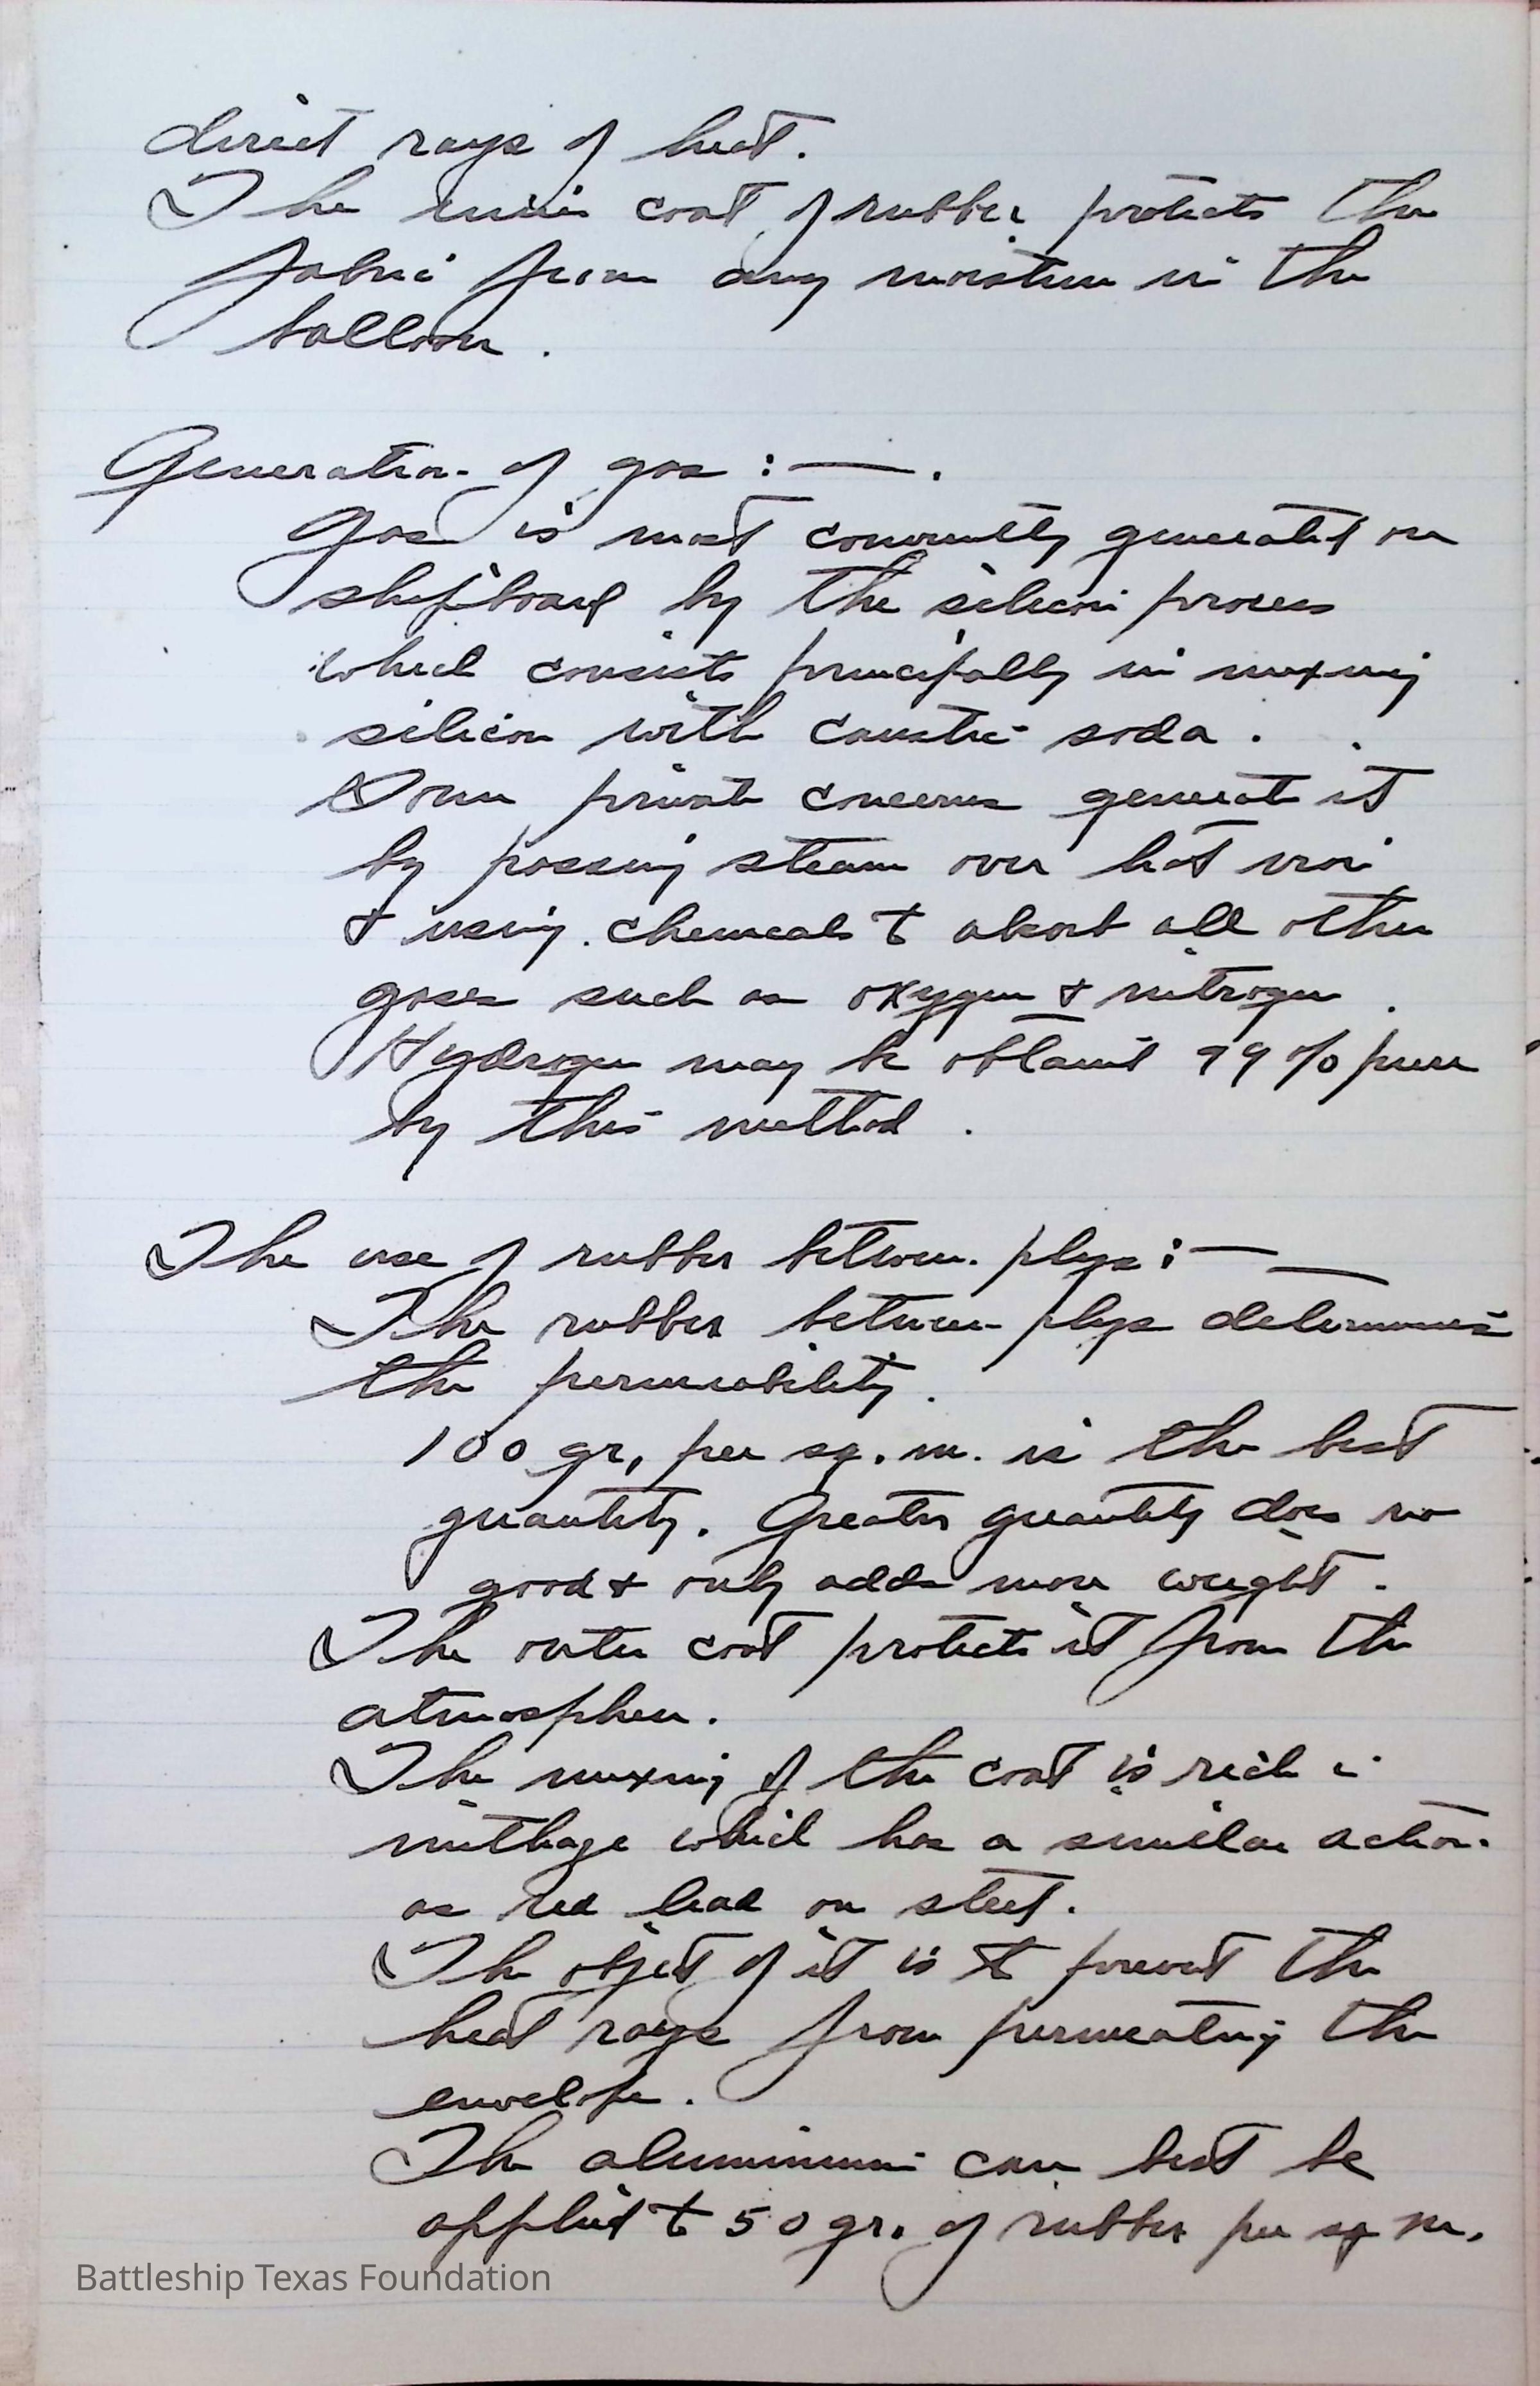 direct rays of heat.
The inner coat of rubber protects the
fabric from any moisture in the
balloon.
Generation of gas :—.
Gas is most conveniently generated on
shipboard by the silicon process
which consists principally in mixing
silicon with caustic soda.
Some private concerns generate it
by passing steam over hot iron
& using chemicals to absorb all other
gases such as oxygen & nitrogen.
Hydrogen may be obtained 99% pure
by this method.
The use of rubber between plys :—
The rubber between plys determines
the permeability.
100 gr, per sq. m. is the best
quantity. Greater quantity does no
good & only adds more weight.
The outer coat protects it from the
atmosphere.
The mixing of the coat is rich in
which has a similar action
as red lead on steel.
The object of it is to prevent the
heat rays from permeating the
envelope.
The aluminum can best be
applied to 50 gr. of rubber per sq m.
Battleship Texas Foundation